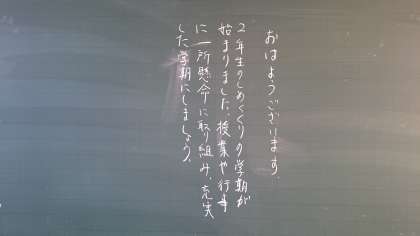 おはようございます。
2年生のしめくくりの学期が
始まりました。授業や行事
に一所懸命に取り組み、充実
した学期にしましょう。